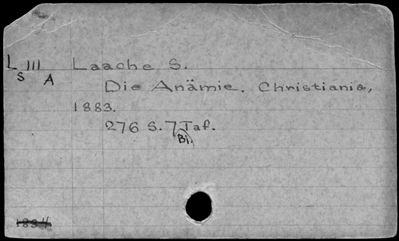 L III Laache S.
S A
Die Anämie. Christiania,
1883.
276 S. 7 Taf.
Bi.
1884